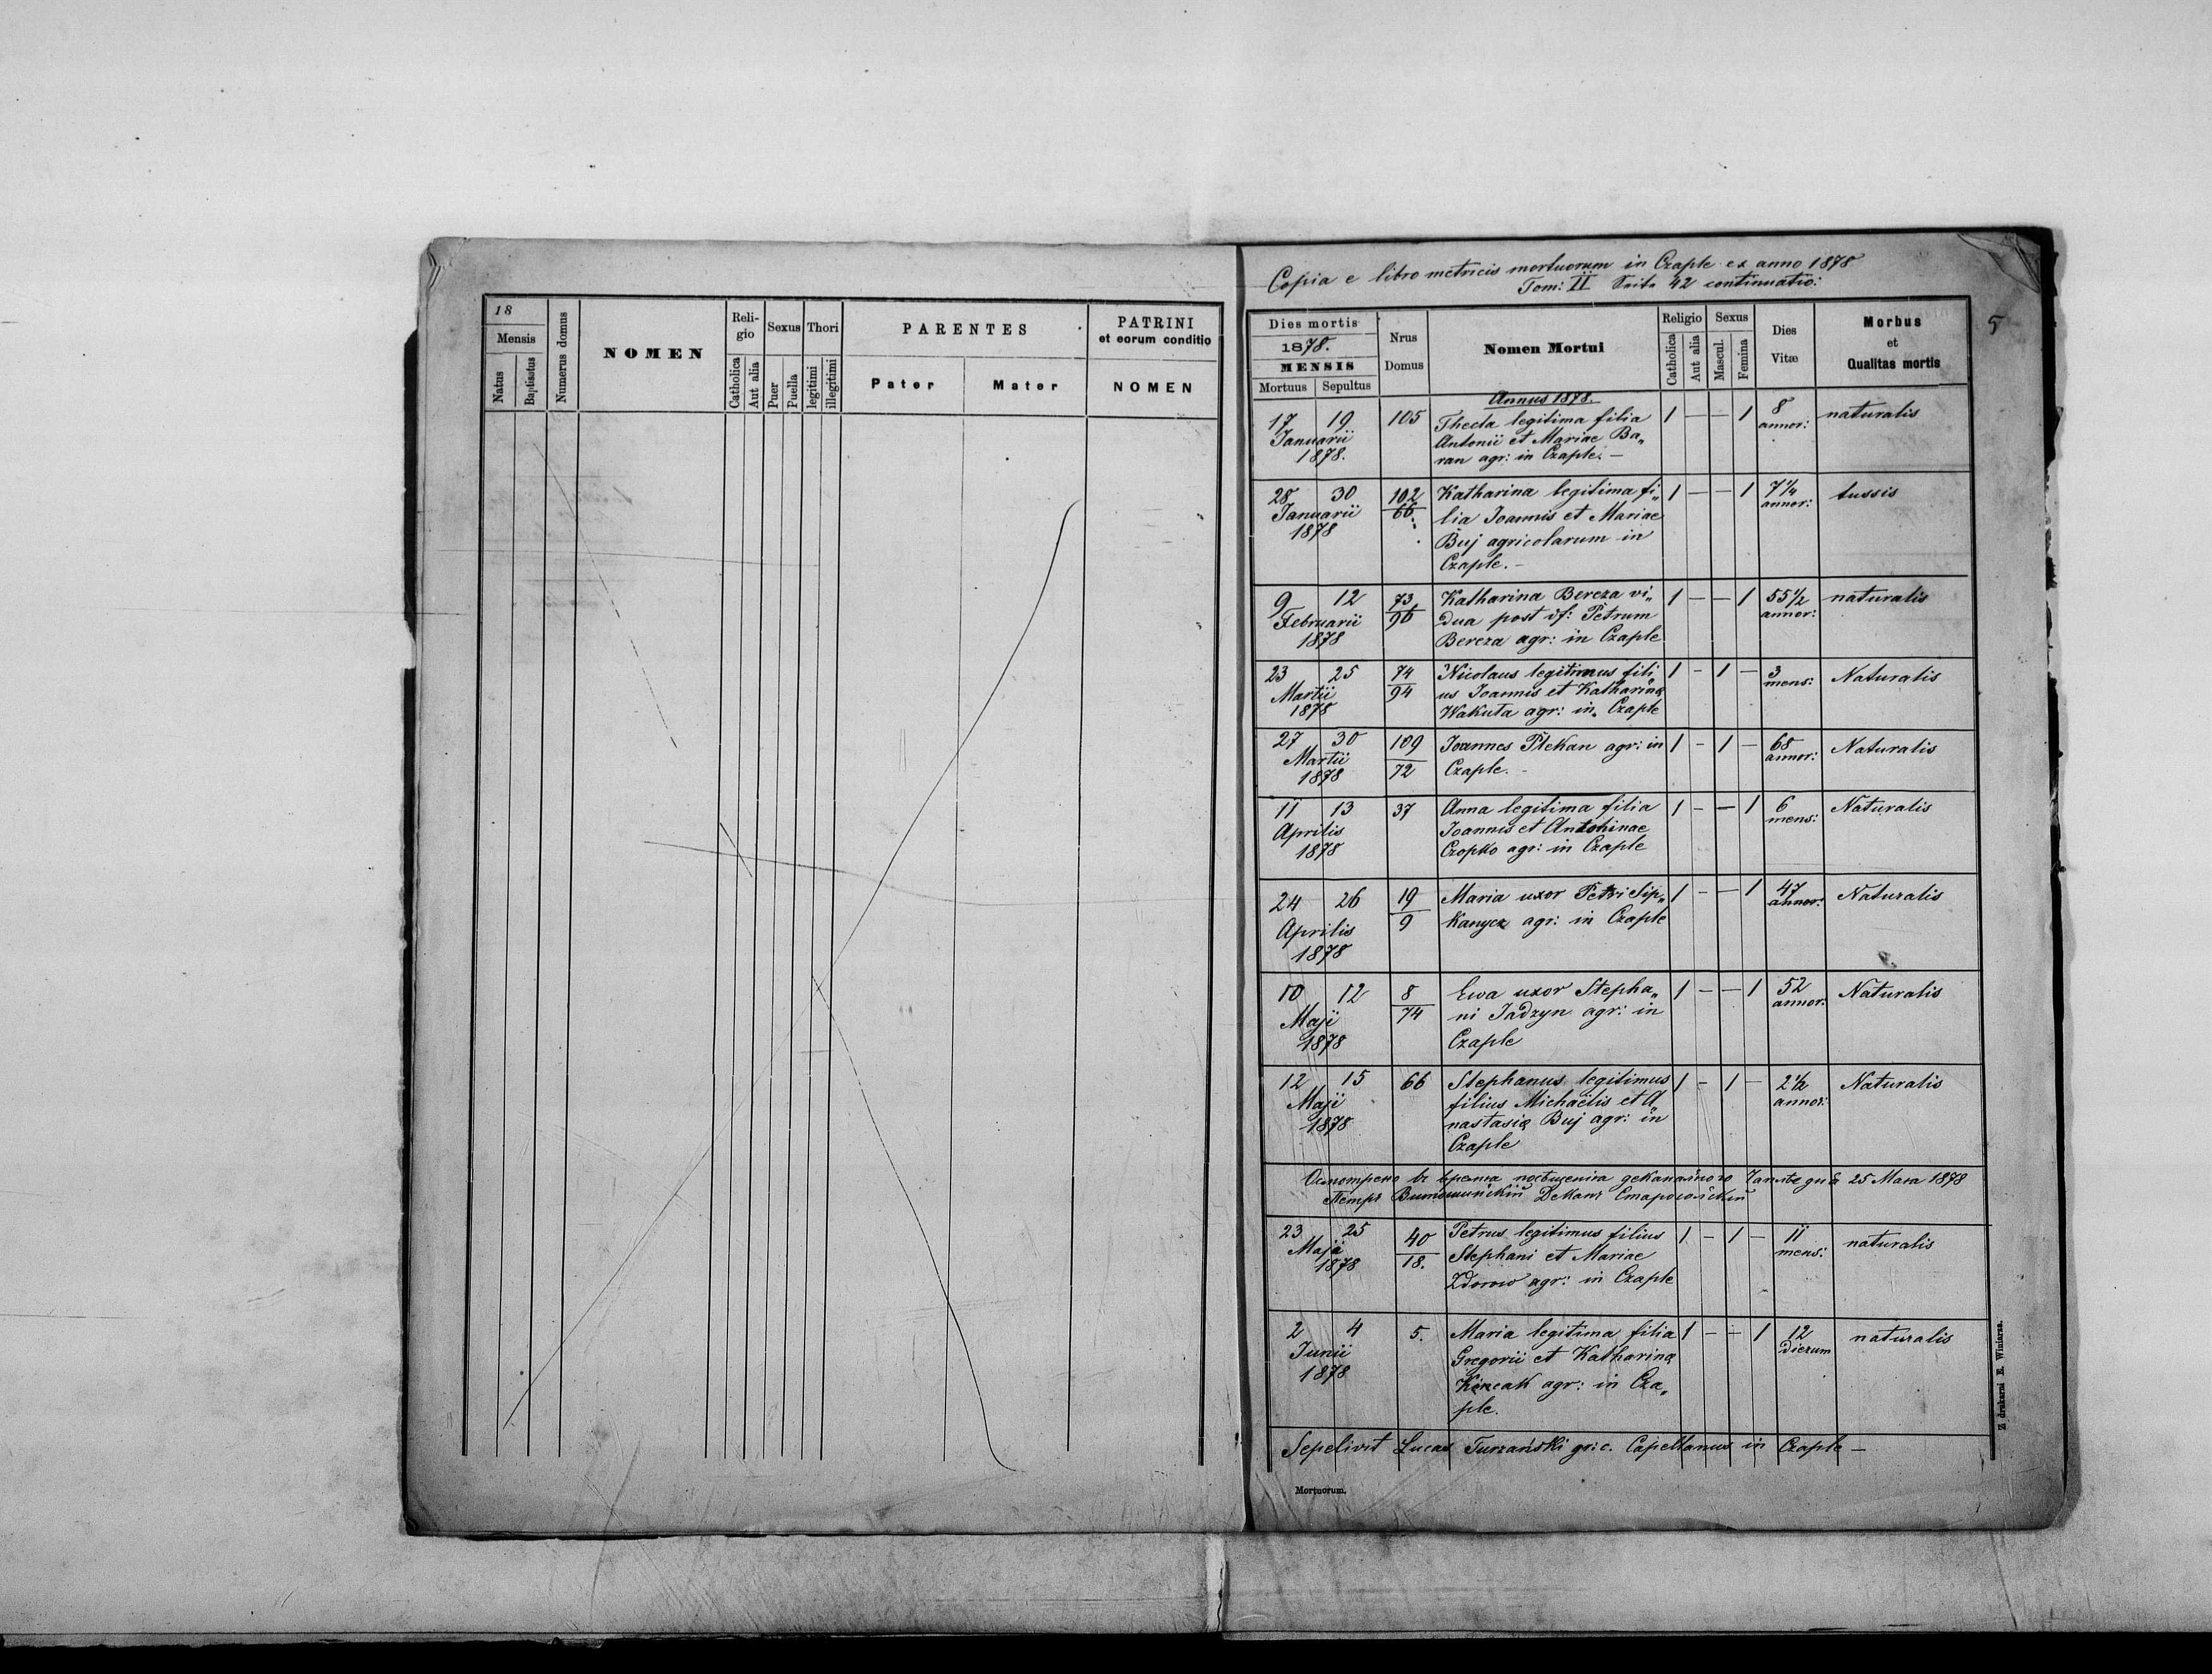 18
Mensis
Natus
Baptisatus
Numerus domus
NOMEN
Reli-
gio
Catholica
Aut alia
Sexus
Puer
Puella
Thori
legitimi
illegitimi
PARENTES
Pater
Mater
PATRINI
et eorum conditio
NOMEN
Copia e libro metricis mortuorum in Czaple ex anno 1878
Tom: II Seite 42 continuatio:
5
Dies mortis
1878.
MENSIS
Mortuus Sepultus
Nrus
Domus
Nomen Mortui
Religio
Catholica
Aut alia
Sexus
Mascul.
Femina
Dies
Vitæ
Morbus
et
Qualitas mortis
Annus 1878.
17 19 105 Thecla legitima filia 1 — — 1 8 naturalis
Januarii Antonii et Mariae Ba„ annor:
1878. ran agr: in Czaple. —
28 30 102/66 Katharina legitima fi„ 1 — — 1 7¼ tussis
Januarii lia Joannis et Mariae annor:
1878 Buj agricolarum in
Czaple. —
9 12 73/96 Katharina Bereza vi„ 1 — — 1 55½ naturalis
Februarii dua post df: Petrum annor:
1878 Bereza agr: in Czaple
23 25 74/94 Nicolaus legitimus fili„ 1 — 1 — 3 Naturalis
Martii us Joannis et Katharinæ mens:
1878 Wakuta agr: in Czaple
27 30 109/72 Joannes Plekan agr: in 1 — 1 — 68 Naturalis
Martii Czaple. — annor:
1878
11 13 37 Anna legitima filia 1 — — 1 6 Naturalis
Aprilis Joannis et Antohinae mens:
1878 Czopko agr: in Czaple
24 26 19/9 Maria uxor Petri Sip„ 1 — — 1 47 Naturalis
Aprilis kanycz agr: in Czaple annor:
1878
10 12 8/74 Ewa uxor Stepha„ 1 — — 1 52 Naturalis
Maji ni Jadzyn agr: in annor:
1878 Czaple
12 15 66 Stephanus legitimus 1 — 1 — 2½ Naturalis
Maji filius Michaëlis et A annor:
1878 nastasiæ Buj agr: in
Czaple
25 Мая 1878
Петръ
23 25 40/18. Petrus legitimus filius 1 — 1 — 11 naturalis
Maja Stephani et Mariae mens:
1878 Zdorow agr: in Czaple
2 4 5. Maria legitima filia 1 — — 1 12 naturalis
Junii Gregorii et Katharinæ dierum
1878 agr: in Cza„
ple.
Sepelivit Lucas Turzański gr: c. Capellanus in Czaple —
Mortuorum.
Z drukarni E. Winiarza.